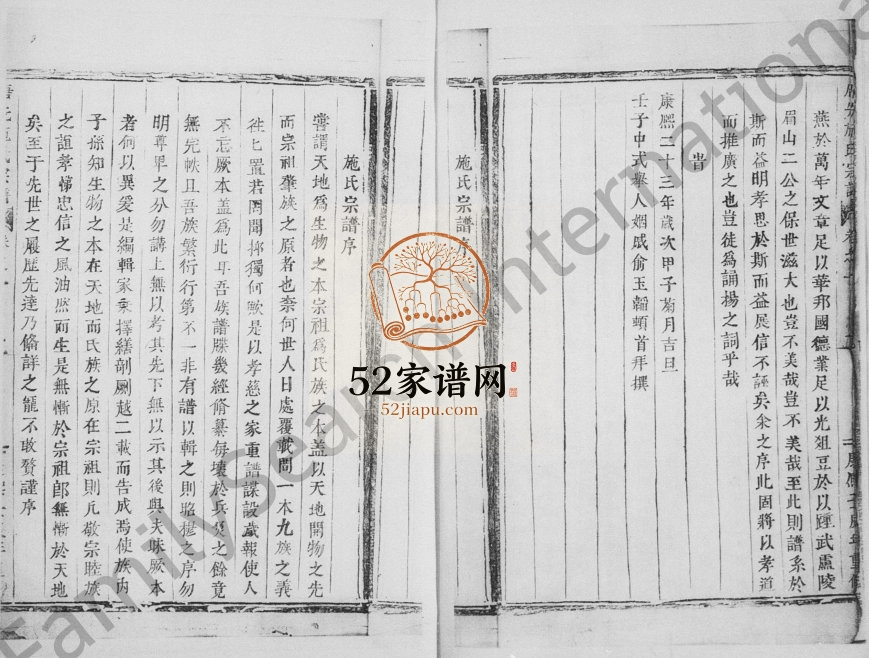 燕於萬年文章足以華邦國德業足以光俎豆於以踵武盧陵
眉山二公之保世滋大也豈不美哉豈不美哉至此則譜系於
斯而益明孝思於斯而益展信不誣矣余之序此固將以孝道
而推廣之也豈徒為誦揚之詞乎哉
旹
康熙二十三年歲次甲子菊月吉旦
壬子中式舉人姻戚俞玉韜頓首拜撰
施氏宗譜序
施氏宗譜序
嘗謂天地為生物之本宗祖為氏族之本蓋以天地開物之先
而宗祖肇族之原者也柰何世人日處覆載間一本九族之義
徃匕置若罔聞抑獨何歟是以孝慈之家重譜諜設歲報使人
不忘厥本蓋為此耳吾族譜牒幾經脩纂每壞於兵燹之餘竟
無完帙且吾族繁衍行第不一非有譜以輯之則昭穆之序勿
明尊卑之分勿講上無以考其先下無以示其後與夫昧厥本
者何以異爰是編輯家乘擇繕剞劂越二載而告成焉使族内
子孫知生物之本在天地而氏族之原在宗祖則凡敬宗睦族
之誼孝悌忠信之風油然而生是無慚於宗祖即無慚於天地
矣至于先世之履歷先達乃脩詳之龍不敢贅謹序
52家谱网
52jiapu.com
FamilySearch International